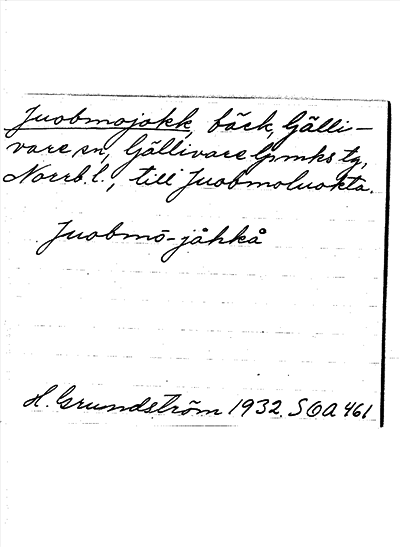 Juobmojokk, bäck, Gälli-
vare sn, Gällivare lpmks tg,
Norrb.l., till Juobmoluokta.
Juobmō-jåhkå
H. Grundström 1932. SOA 461